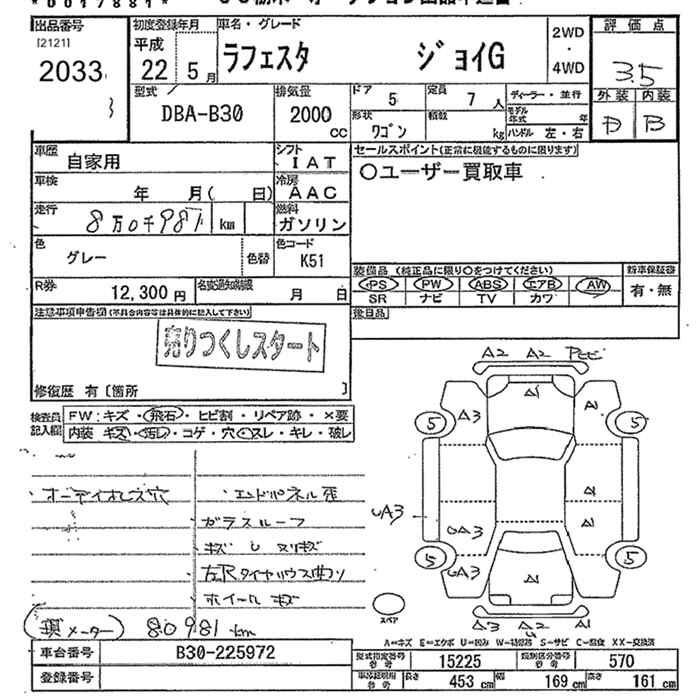 *0017881*
出品番号
[2121]
2033
初度登録年月
平成
22 5月
車名・グレード
ラフェスタ ジョイG
2WD
・
4WD
評価点
3.5
外装 内装
D B
型式
DBA-B30
排気量
2000
CC
ドア
5
定員
7 人
形状
ワゴン
積載
kg
ディーラー・並行
モデル年式 年
ハンドル 左・右
車歴
自家用
シフト
IAT
車検
年 月( 日)
冷房
AAC
走行
8万0千981 km
燃料
ガソリン
色
グレー
色替
色コード
K51
R券
12,300円
名変通知期限
月 日
セールスポイント(正常に機能するものに限ります)
○ユーザー買取車
装備品 (純正品に限り○をつけてください)
PS PW ABS エアB AW
SR ナビ TV カワ
新車保証書
有・無
後日品
注意事項申告欄(不具合内容等は具体的に記入して下さい)
売りつくしスタート
修復歴 有〔箇所 〕
検査員記入欄
FW:キズ・飛石・ヒビ割・リペア跡・×要
内装 キズ・汚レ・コゲ・穴・スレ・キレ・破レ
・オーディオレス穴
・エンドパネル歪
ガラスルーフ
キズ
左Rタイヤハウス曲り
ホイールキズ
(現メーター) 80981km
A2 A2
A3 A1 A1
5 5
UA3
A1
UA3 A1
UA3
5 5
A1
スペア
A3 A2 A1
A=キズ E=エクボ U=凹み W=補修跡 S=サビ C=腐食 XX=交換済
車台番号
B30-225972
登録番号
型式指定番号
参考
15225
類別区分番号
参考
570
車体証明用
参考
長さ
453 cm
幅
169 cm
高さ
161 cm